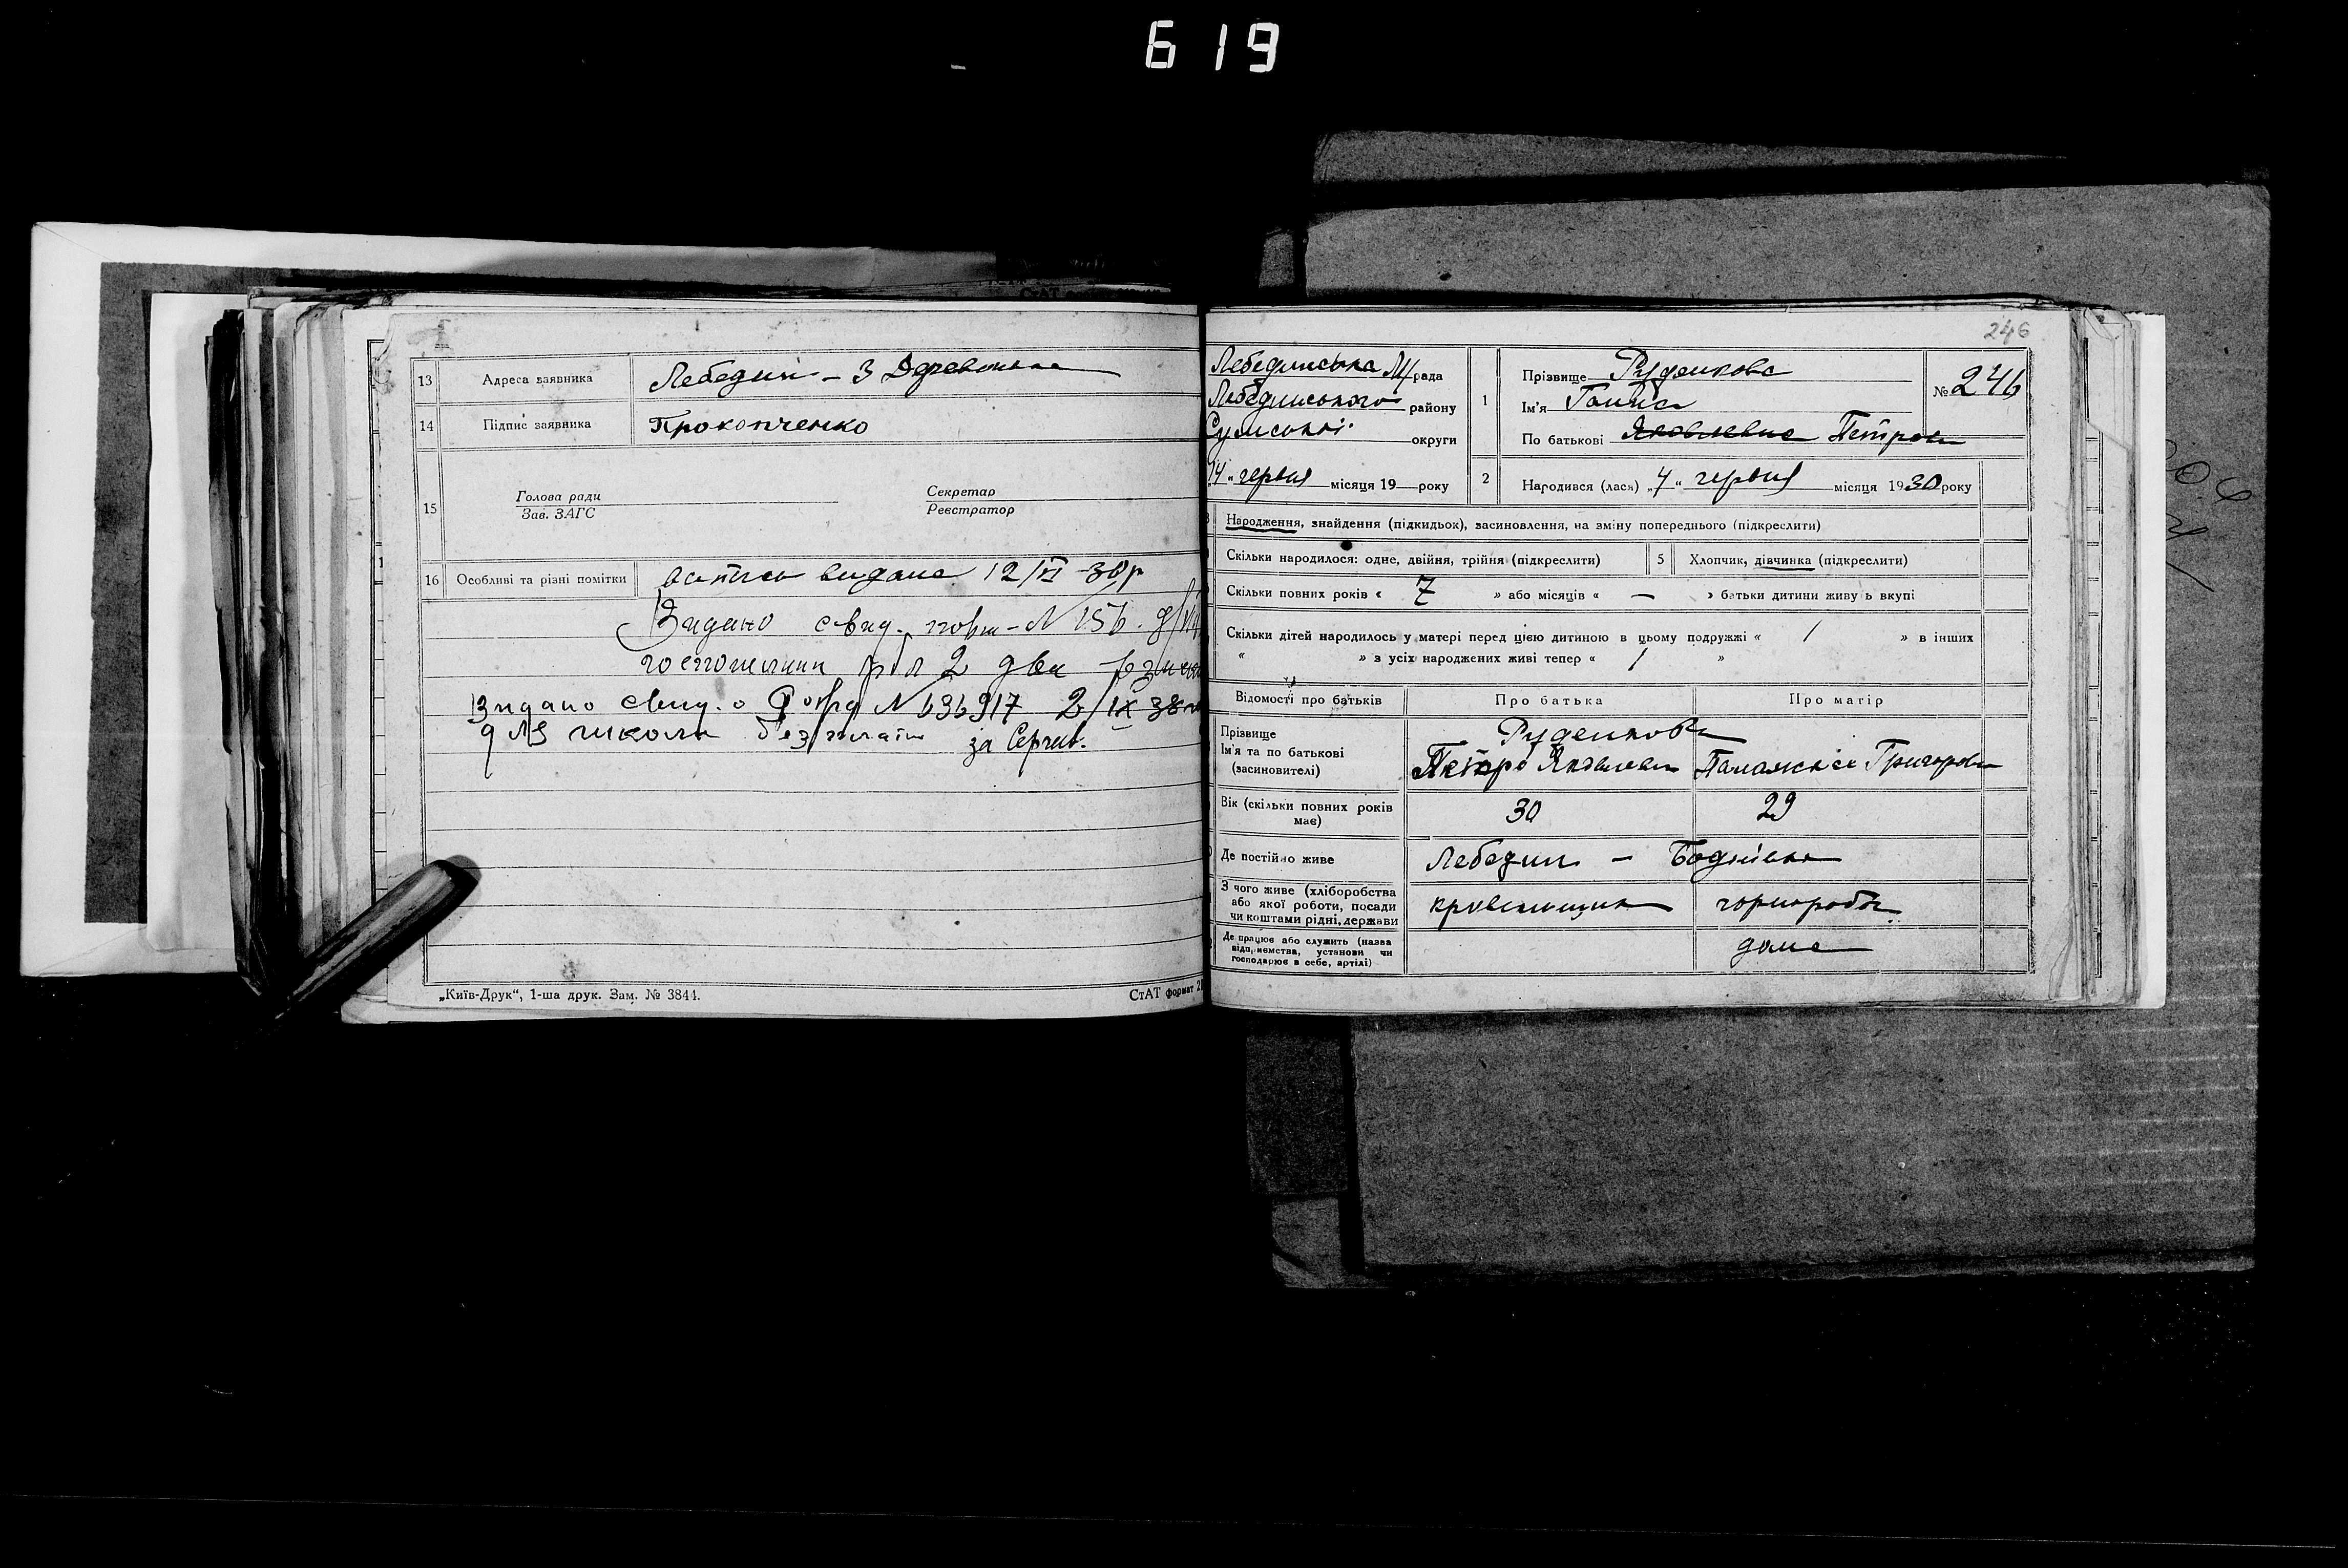 619
13 Адреса заявника Лебедин - 3
14 Підпис заявника Прокопченко
15 Голова ради Секретар
Зав. ЗАГС Реєстратор
16 Особливі та різні помітки видана 12/VI 30р
Видано свид. №
2 два
Видано свид. о № 636917 2/IX 38
для школи за
„Київ-Друк“, 1-ша друк. Зам. № 3844.
СтАТ формат
246
Лебединська М/рада
Лебединського району
Сумської округи
14 " червня місяця 19 року
1 Прізвище Руденкова
№ 246
Ім'я Ганна
По батькові Яковлевна Петров
2 Народився (лася) „7“ червня місяця 1930 року
Народження, знайдення (підкидьок), засиновлення, на зміну попереднього (підкреслити)
Скільки народилося: одне, двійня, трійня (підкреслити) 5 Хлопчик, дівчинка (підкреслити)
Скільки повних років « 7 » або місяців « — » батьки дитини живу ь вкупі
Скільки дітей народилось у матері перед цією дитиною в цьому подружжі « 1 » в інших
« » з усіх народжених живі тепер « 1 »
Відомості про батьків Про батька Про матір
Прізвище Руденкови
Ім'я та по батькові Петро Яковлевич Григоров
(засиновителі)
Вік (скільки повних років має) 30 29
Де постійно живе Лебедин —
З чого живе (хліборобства або якої роботи, посади чи коштами рідні, держави чорнороб
Де працює або служить (назва підприємства, установи чи господарює в себе, артілі) дома